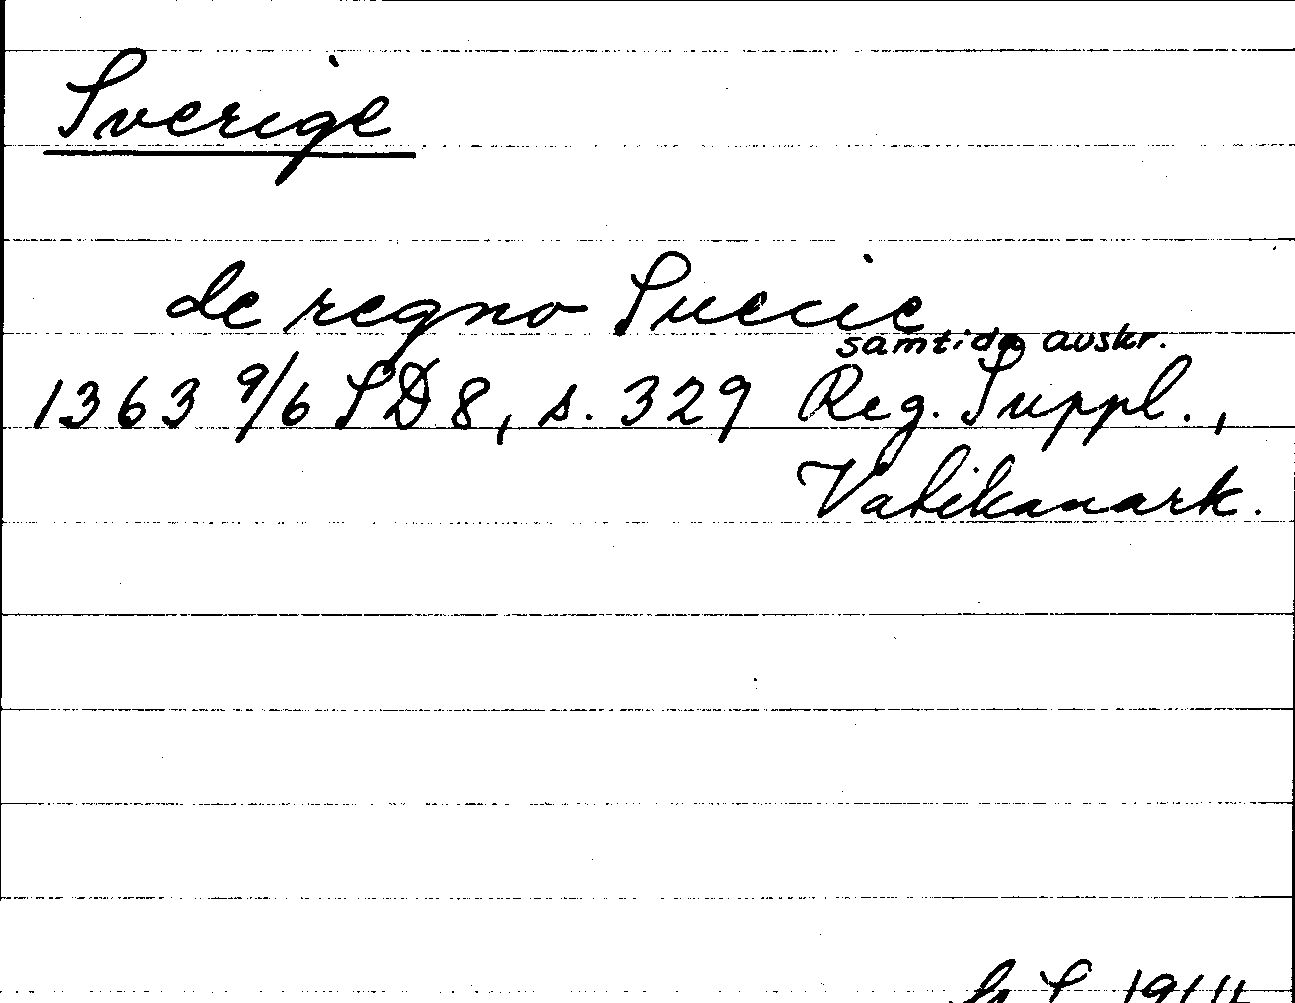 Sverige
de regno Suecie
samtida avskr.
1363 9/6 SD 8, s. 329 Reg. Suppl.,
Vatikanark.